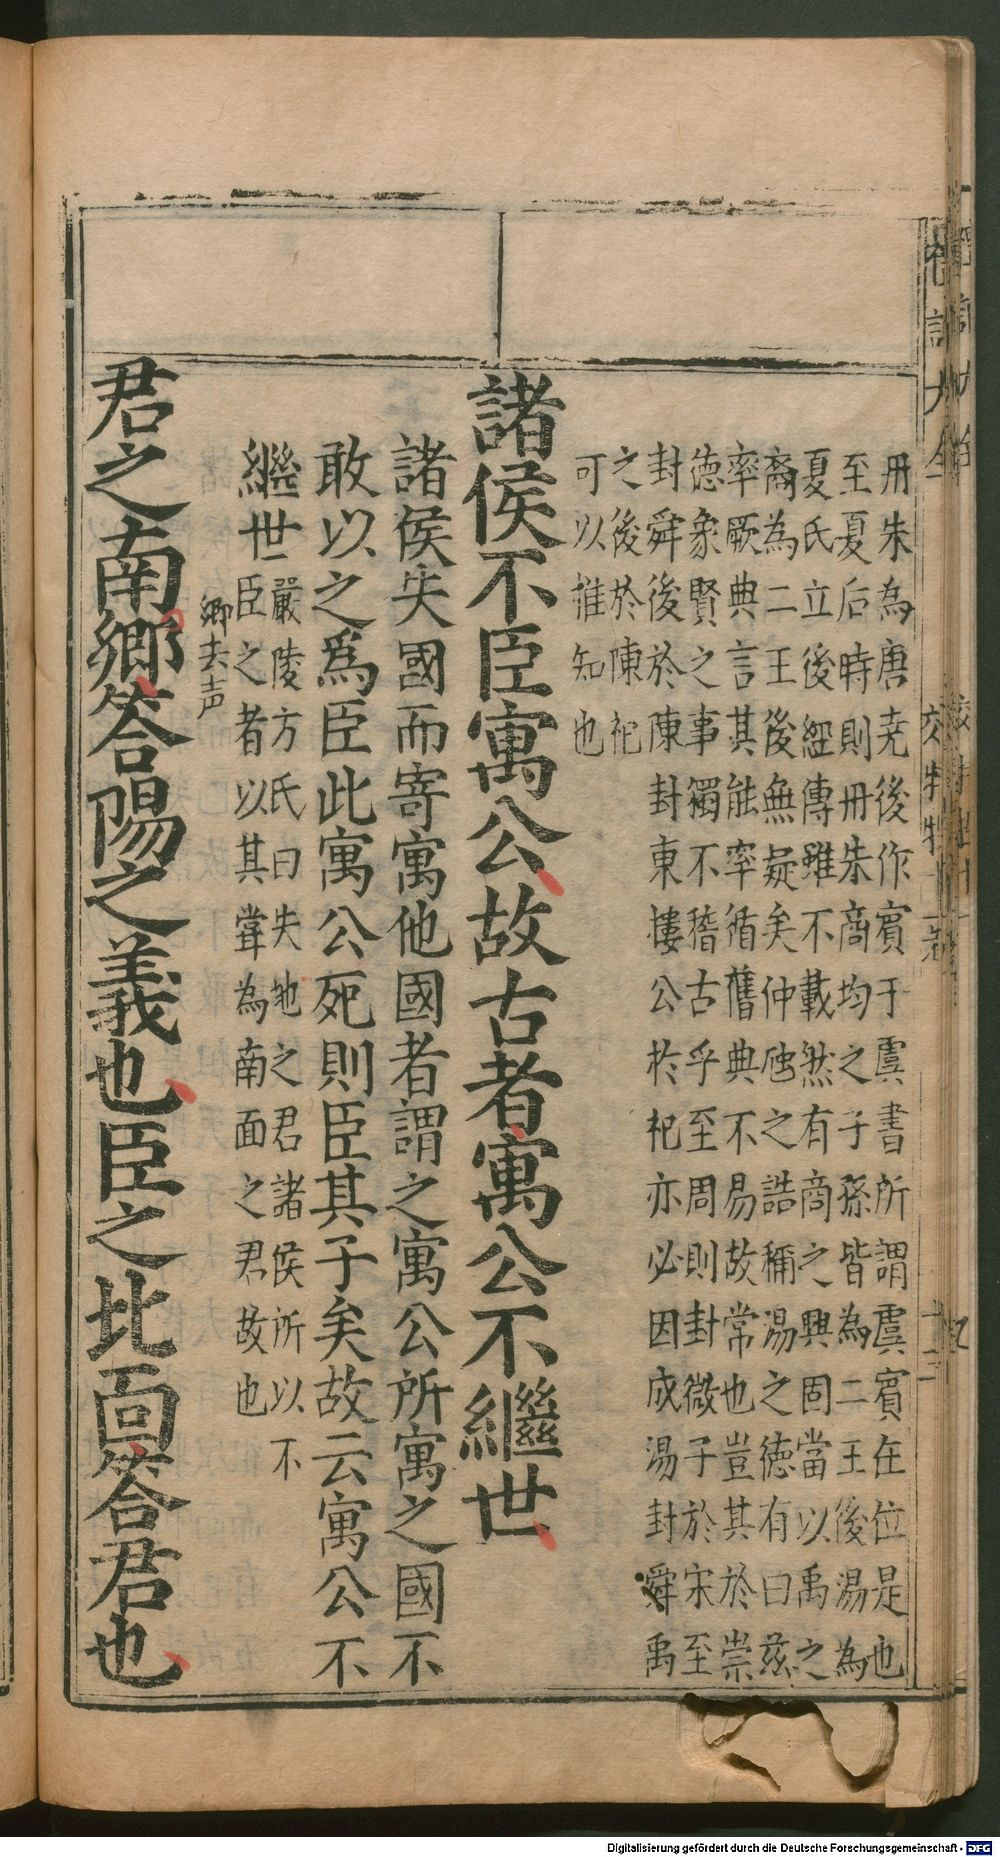 礼記大全
丹朱為唐尭後作賓于虞書所謂虞賓在位是也
至夏后時則丹朱商均之子孫皆為二王後湯為
夏氏立後經傳雖不載然有商之興固當以禹之
裔為二王後無疑矣仲虺之誥稱湯之德有曰茲
率厥典言其能率循舊典不易故常也豈其於崇
德象賢之事獨不稽古乎至周則封微子於宋至
封舜後於陳封東摟公於杞亦必因成湯封舜禹
之後於陳祀
可以推知也
諸侯不臣寓公故古者寓公不繼世
諸侯失國而寄寓他國者謂之寓公所寓之國不
敢以之爲臣此寓公死則臣其子矣故云寓公不
繼世
嚴陵方氏曰失地之君諸侯所以不
臣之者以其甞為南面之君故也
郷去声
君之南鄉答陽之義也臣之北面答君也
Digitalisierung gefördert durch die Deutsche Forschungsgemeinschaft - DFG